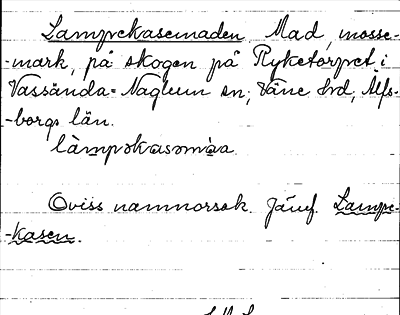 Lampekasemaden, Mad, mosse-
-mark, på skogen på Ryketorpet i
Vassända-Naglum sn, Väne hd, Älfs-
-borgs län.
làmpəkasəmàa.
Oviss namnorsok. Jämf. Lampe-
-kasen.